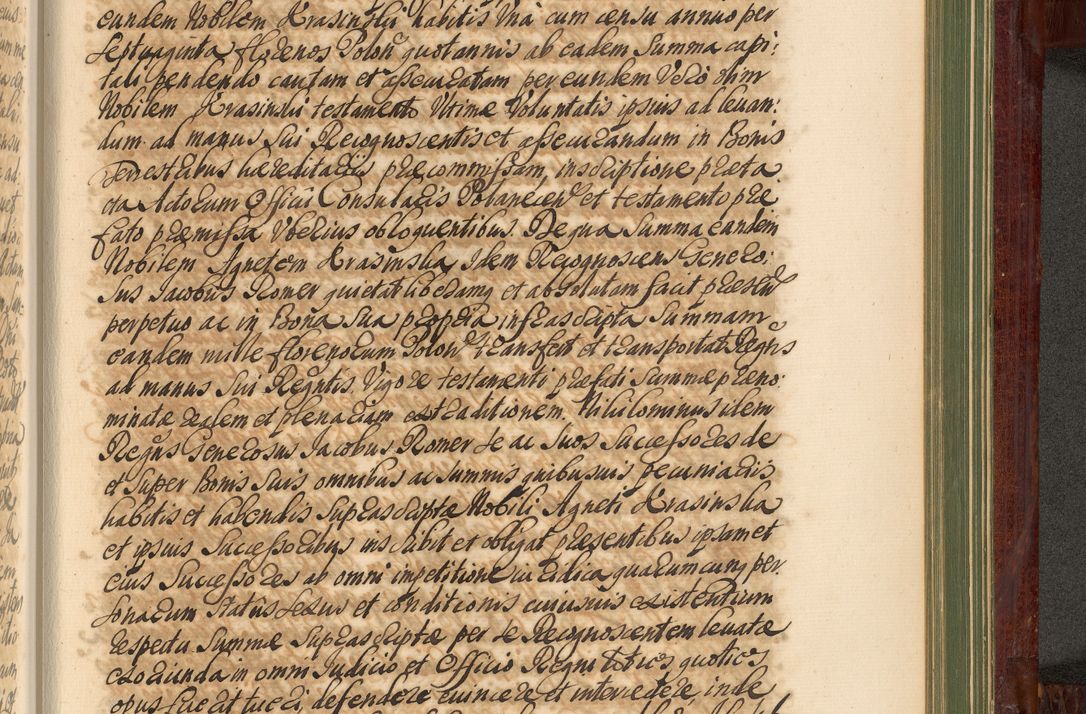 eundem Nobilem Krasinski habitis Una cum censu annuo per
septuaginta florenos Polon quotannis ab eadem Summa capi:
tali pendendo cautam et assecuratam per eundem Vero olim
Nobilem Krasinski testamento Ultimæ Voluntatis ipsius ad levan:
dum ad manus sui Recognoscentis et assecurandum in Bonis
terrestribus hæreditariis præcommissam, inscriptione præta
cta Actorum Officii Consularis et testamento præ
fato præmissa Uberius obloquentibus. De qua Summa eandem
Nobilem Agnetem Krasinska Idem Recognoscens Genero:
sus Jacobus Romer quietat liberamq et absolutam facit præsen
perpetuo ac in Bona sua propria infrascripta Summam
eandem mille florenorum Polon transfert et transportat Regns
ad manus sui Regntis Vigore testamenti præfati Summæ præno:
minatæ realem et plenariam extraditionem. Nihilominus idem
Regns Generosus Jacobus Romer se ac suos Successores de
et super Bonis suis omnibus ac summis quibusvis pecuniariis
habitis et habendis suprascriptæ Nobili Agneti Krasinska
et ipsius Successoribus inscribit et obligat præsentibus ipsam et
eius Successores ab omni impetitione iuridica quarumcunq per
sonarum Status sexus et conditionis cuiusvis existentium
respectu Summæ suprascriptæ per se Recognoscentem levatæ
exoriunda in omni Judicio et Officio Regni toties quoties
opus fuerit tueri, defendere evincere et intercedere inde